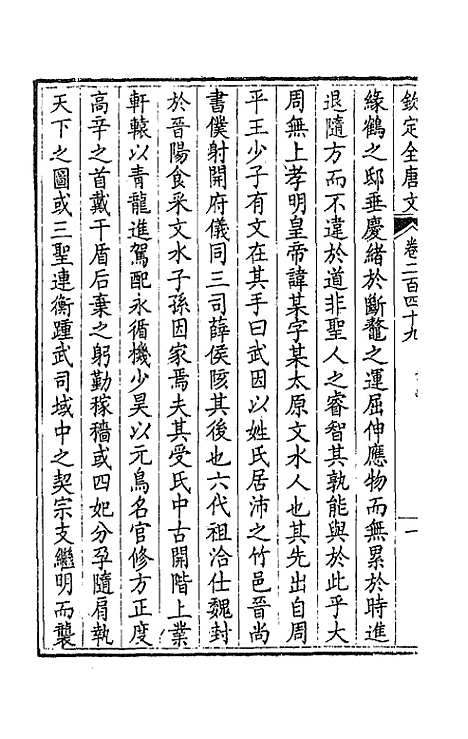 欽定全唐文 卷二百四十九 一
緣鶴之邸垂慶緒於斷鼇之運屈伸應物而無累於時進
退隨方而不違於道非聖人之睿智其孰能與於此乎大
周無上孝明皇帝諱某字某太原文水人也其先出自周
平王少子有文在其手曰武因以姓氏居沛之竹邑晉尚
書僕射開府儀同三司薛侯陔其後也六代祖洽仕魏封
於晉陽食采文水子孫因家焉夫其受氏中古開階上業
軒轅以青龍進駕配永循機少昊以元鳥名官修方正度
高辛之首戴干盾后棄之躬勤稼穡或四妃分孕隨肩執
天下之圖或三聖連衡踵武司域中之契宗支繼明而襲